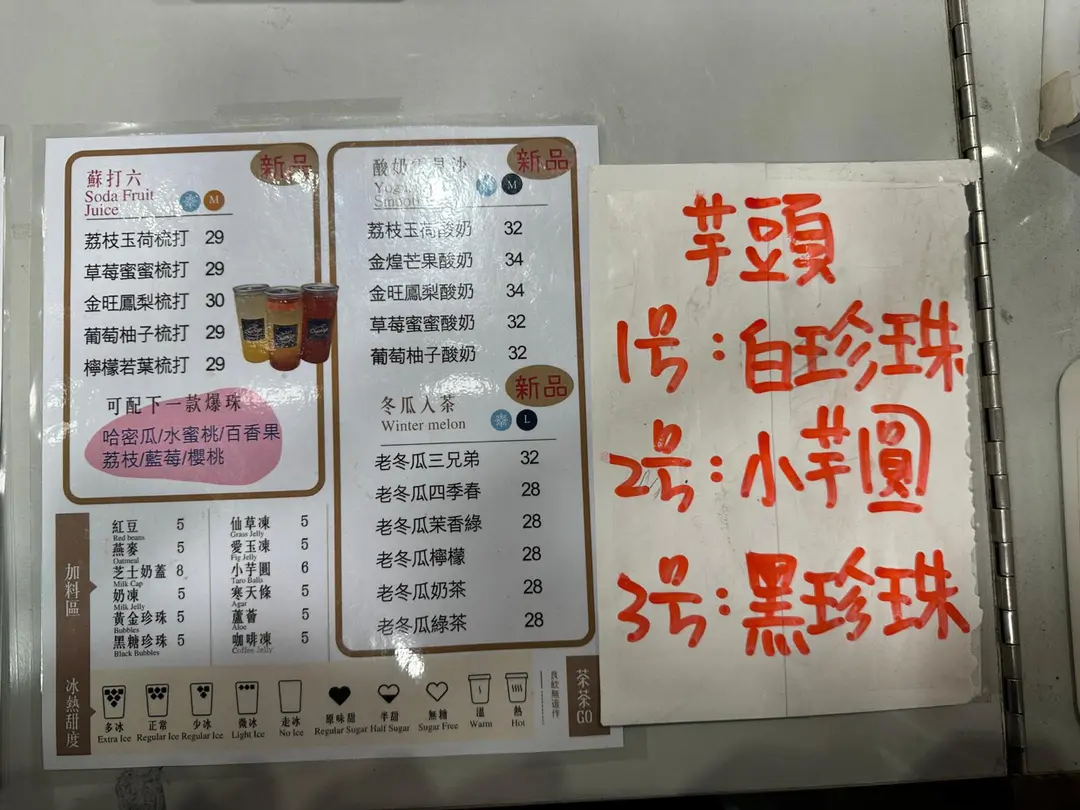 新品
蘇打六
Soda Fruit
Juice
M
荔枝玉荷梳打 29
草莓蜜蜜梳打 29
金旺鳳梨梳打 30
葡萄柚子梳打 29
檸檬若葉梳打 29
可配下一款爆珠
哈密瓜/水蜜桃/百香果
荔枝/藍莓/櫻桃
新品
酸奶 沙
M
荔枝玉荷酸奶 32
金煌芒果酸奶 34
金旺鳳梨酸奶 34
草莓蜜蜜酸奶 32
葡萄柚子酸奶 32
新品
冬瓜人茶
Winter melon
L
老冬瓜三兄弟 32
老冬瓜四季春 28
老冬瓜茉香綠 28
老冬瓜檸檬 28
老冬瓜奶茶 28
老冬瓜綠茶 28
加料區
紅豆 5
Red beans
燕麥 5
Oatmeal
芝士奶蓋 8
Milk Cap
奶凍 5
Milk Jelly
黃金珍珠 5
Bubbles
黑糖珍珠 5
Black Bubbles
仙草凍 5
Grass Jelly
愛玉凍 5
Fig Jelly
小芋圓 6
Taro Balls
寒天條 5
Agar
蘆薈 5
Aloe
咖啡凍 5
Coffee Jelly
冰熱甜度
多冰
Extra Ice
正常
Regular Ice
少冰
Regular Ice
微冰
Light Ice
走冰
No Ice
原味甜
Regular Sugar
半甜
Half Sugar
無糖
Sugar Free
溫
Warm
熱
Hot
茶茶GO
芋頭
1号:白珍珠
2号:小芋圓
3号:黑珍珠